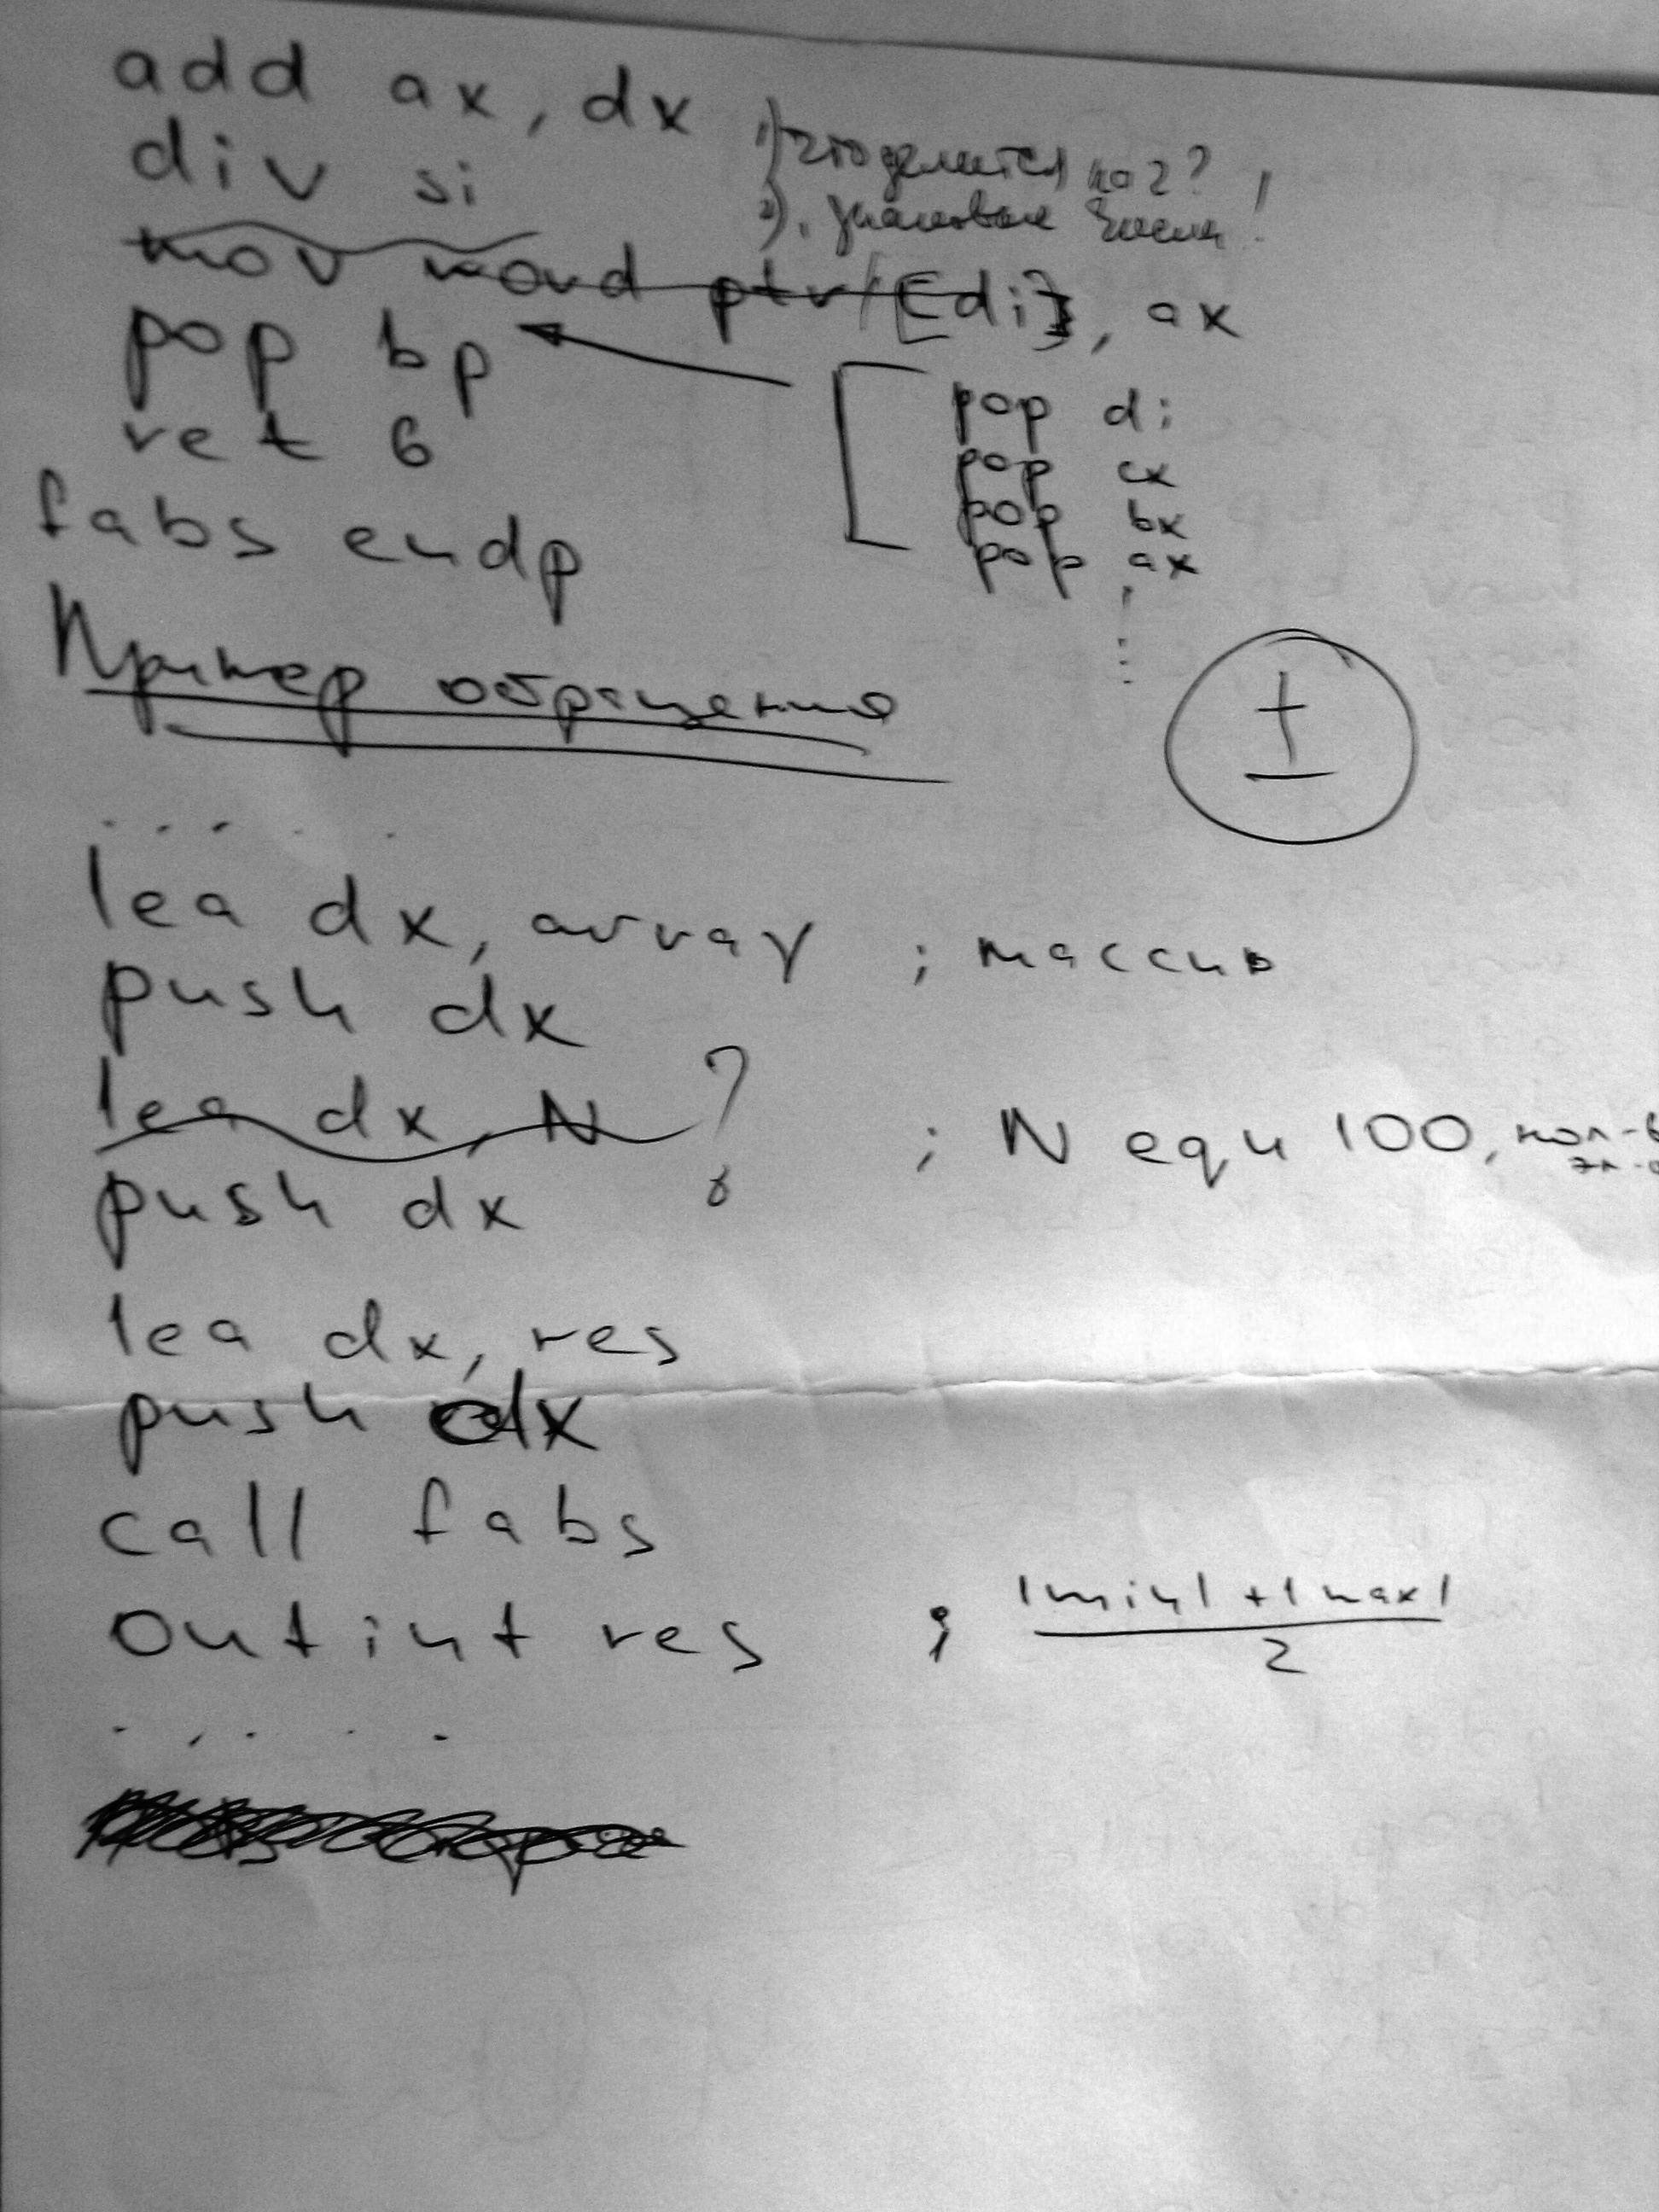 add ax, dx
div si
1) что делится на 2?
2). знаковые числа!
mov word ptr [di], ax
pop bp
ret 6
pop di
pop cx
pop bx
pop ax
fabs endp
Пример обращения
±
.....
lea dx, array ; массив
push dx
lea dx, N ? ; N equ 100, кол-в
эл-
push dx
lea dx, res
push dx
call fabs
outint res ; |min| + |max|
2
.....